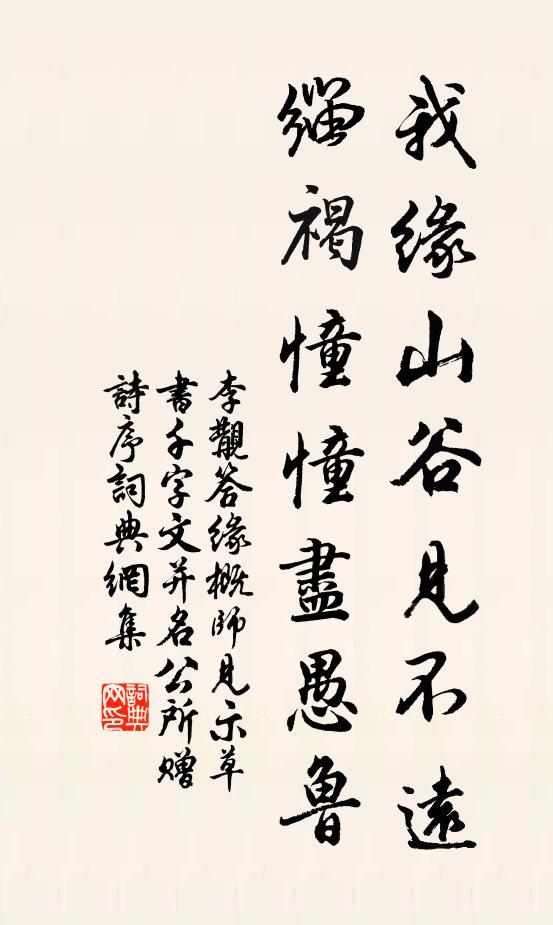 我缘山谷見不遠
緇褐憧憧盡愚魯
李觀答缘概師見示草
書千字文并名公所贈
詩序詞典網集
詞典网印